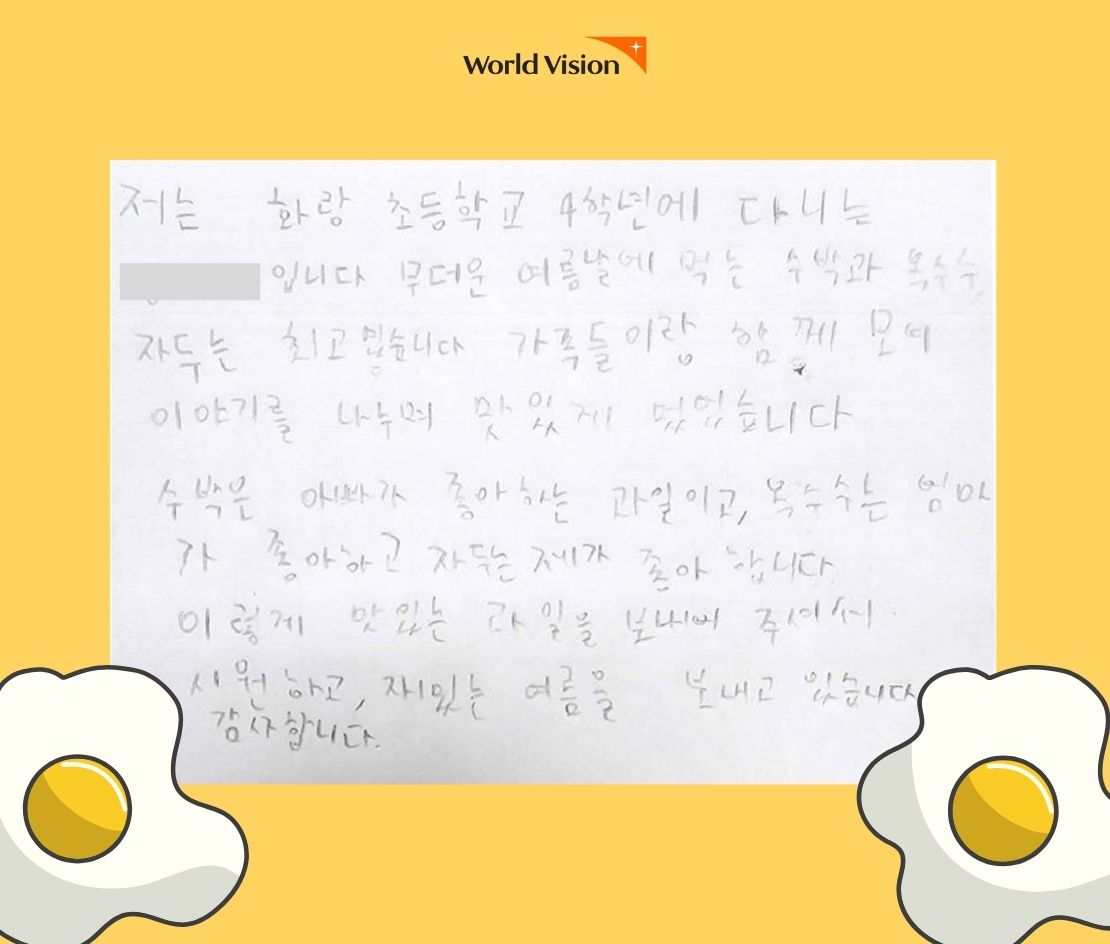 World Vision
저는 화랑 초등학교 4학년에 다니는
입니다 무더운 여름날에 먹는 수박과 옥수수,
자두는 최고입습니다 가족들이랑 함께 모여
이야기를 나누며 맛있게 먹었습니다
수박은 아빠가 좋아하는 과일이고, 옥수수는 엄마
가 좋아하고 자두는 제가 좋아 합니다
이렇게 맛있는 과일을 보내어 주셔서
시원하고, 재밌는 여름을 보내고 있습니다
감사합니다.